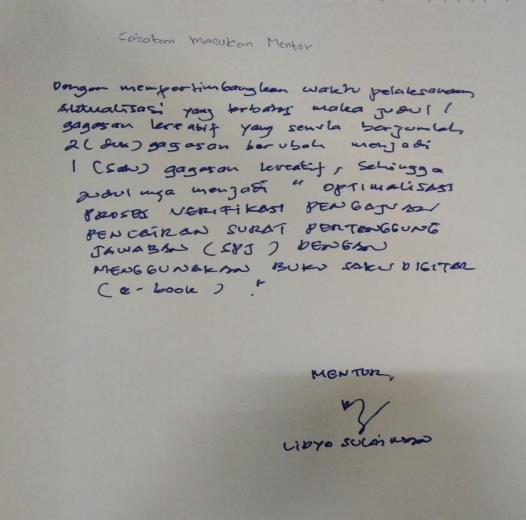 Catatan Masukan Mentor
Dengan mempertimbangkan waktu pelaksanaan
aktualisasi yang terbatas maka judul /
gagasan kreatif yang semula berjumlah
2 (dua) gagasan berubah menjadi
1 (satu) gagasan kreatif, sehingga
judulnya menjadi " OPTIMALISASI
PROSES VERIFIKASI PENGAJUAN /
PENCAIRAN SURAT PERTANGGUNG
JAWABAN (SPJ) DENGAN
MENGGUNAKAN BUKU SAKU DIGITAL
(e-book) ."
MENTOR,
LIDYA